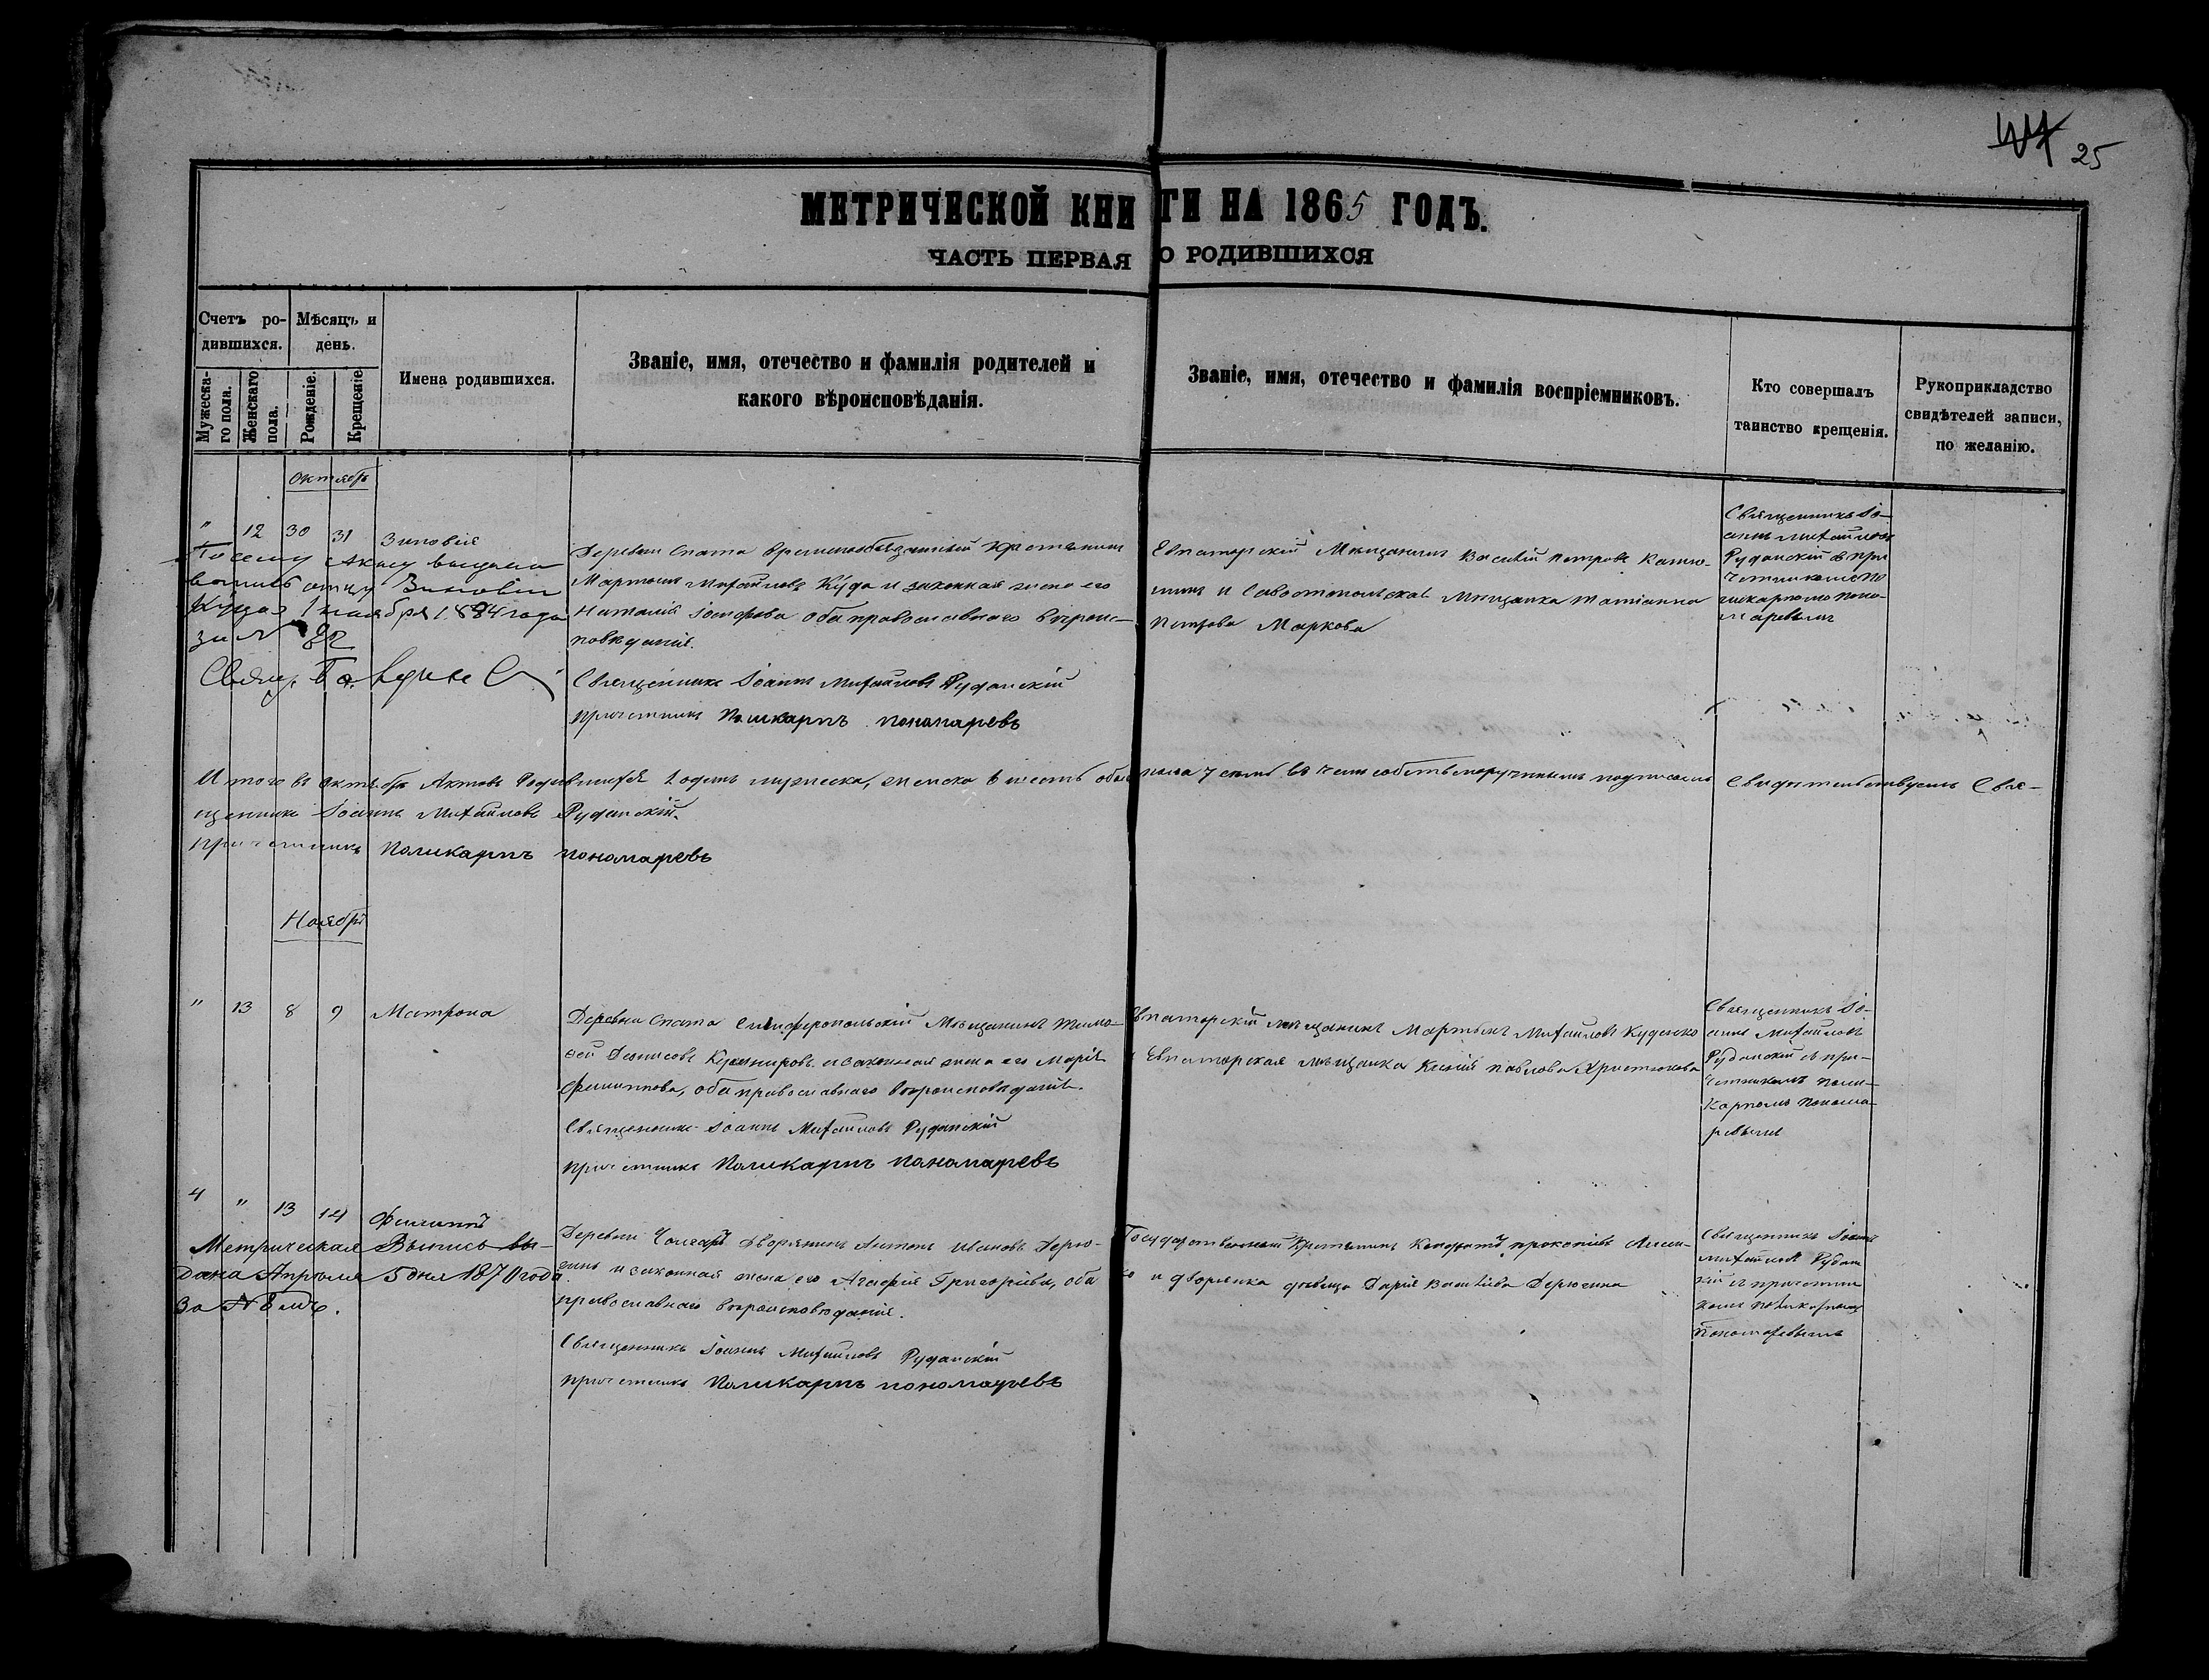 25
МЕТРИЧЕСКОЙ КНИГИ НА 1865 ГОДЪ.
ЧАСТЬ ПЕРВАЯ О РОДИВШИХСЯ
Счетъ ро-
дившихся.
Мѣсяцъ и
день.
Мужеска-
го пола.
Женскаго
пола.
Рожденіе.
Крещеніе.
Имена родившихся.
Званіе, имя, отечество и фамилія родителей и
какого вѣроисповѣданія.
Званіе, имя, отечество и фамилія воспріемниковъ.
Кто совершалъ
таинство крещенія.
Рукоприкладство
свидѣтелей записи,
по желанію.
Октябрь
" 12 30 31 Зиновія
По сему Акту выдана
выпись отцу Зиновіи
1 ноября 1884 года
за № 82
Свящ.
Деревни Спата временнообязанный крестьянинъ
Мартынъ Михайловъ Куда и законная жена его
Наталія Іосифова оба православнаго вѣроис-
повѣданія.
Священникъ Іоаннъ Михайловъ Руданскій
причетникъ Поликарпъ Пономаревъ
Евпаторскій Мѣщанинъ Василій Петровъ
и Севастопольская Мѣщанка Татіанна
Петрова Маркова
Священникъ Іо-
аннъ Михайловъ
Руданскій съ при
четникомъ По
ликарпомъ Поно-
маревымъ
Итого въ Октябрѣ Актовъ Родившихся 1 одинъ мужеска, женска 6 шесть обоего пола 7 семь въ чемъ собственноручнымъ подписомъ свидѣтельствуемъ Свя-
щенникъ Іоаннъ Михайловъ Руданскій.
Причетникъ Поликарпъ Пономаревъ
Ноябрь
" 13 8 9 Матрона
Деревни Спата Симферопольскій Мѣщанинъ Тимо-
ѳей Денисовъ Кушнировъ и законная жена его Марія
Филиппова, оба православнаго вѣроисповѣданія.
Священникъ Іоаннъ Михайловъ Руданскій
причетникъ Поликарпъ Пономаревъ
Евпаторскій мѣщанинъ Мартынъ Михайловъ Куденко
и Евпаторская мѣщанка Ксенія Павлова Христюкова
Священникъ Іо-
аннъ Михайловъ
Руданскій съ при-
четникомъ Поли-
карпомъ Понома-
ревымъ
4 " 13 14 Филиппъ
Метрическая Выпись вы-
дана Апрѣля 5 дня 1870 года
за №
Деревни Дворянинъ Антонъ Ивановъ Дерю-
гинъ и законная жена его Агафія Григорьева, оба
православнаго вѣроисповѣданія.
Священникъ Іоаннъ Михайловъ Руданскій
причетникъ Поликарпъ Пономаревъ
Государственный Крестьянинъ Кондратъ Прокопіевъ
и дворянка дѣвица Дарія Васильева Дерюгина
Священникъ Іоаннъ
Михайловъ Рудан
скій съ причетни
комъ Поликарпомъ
Пономаревымъ